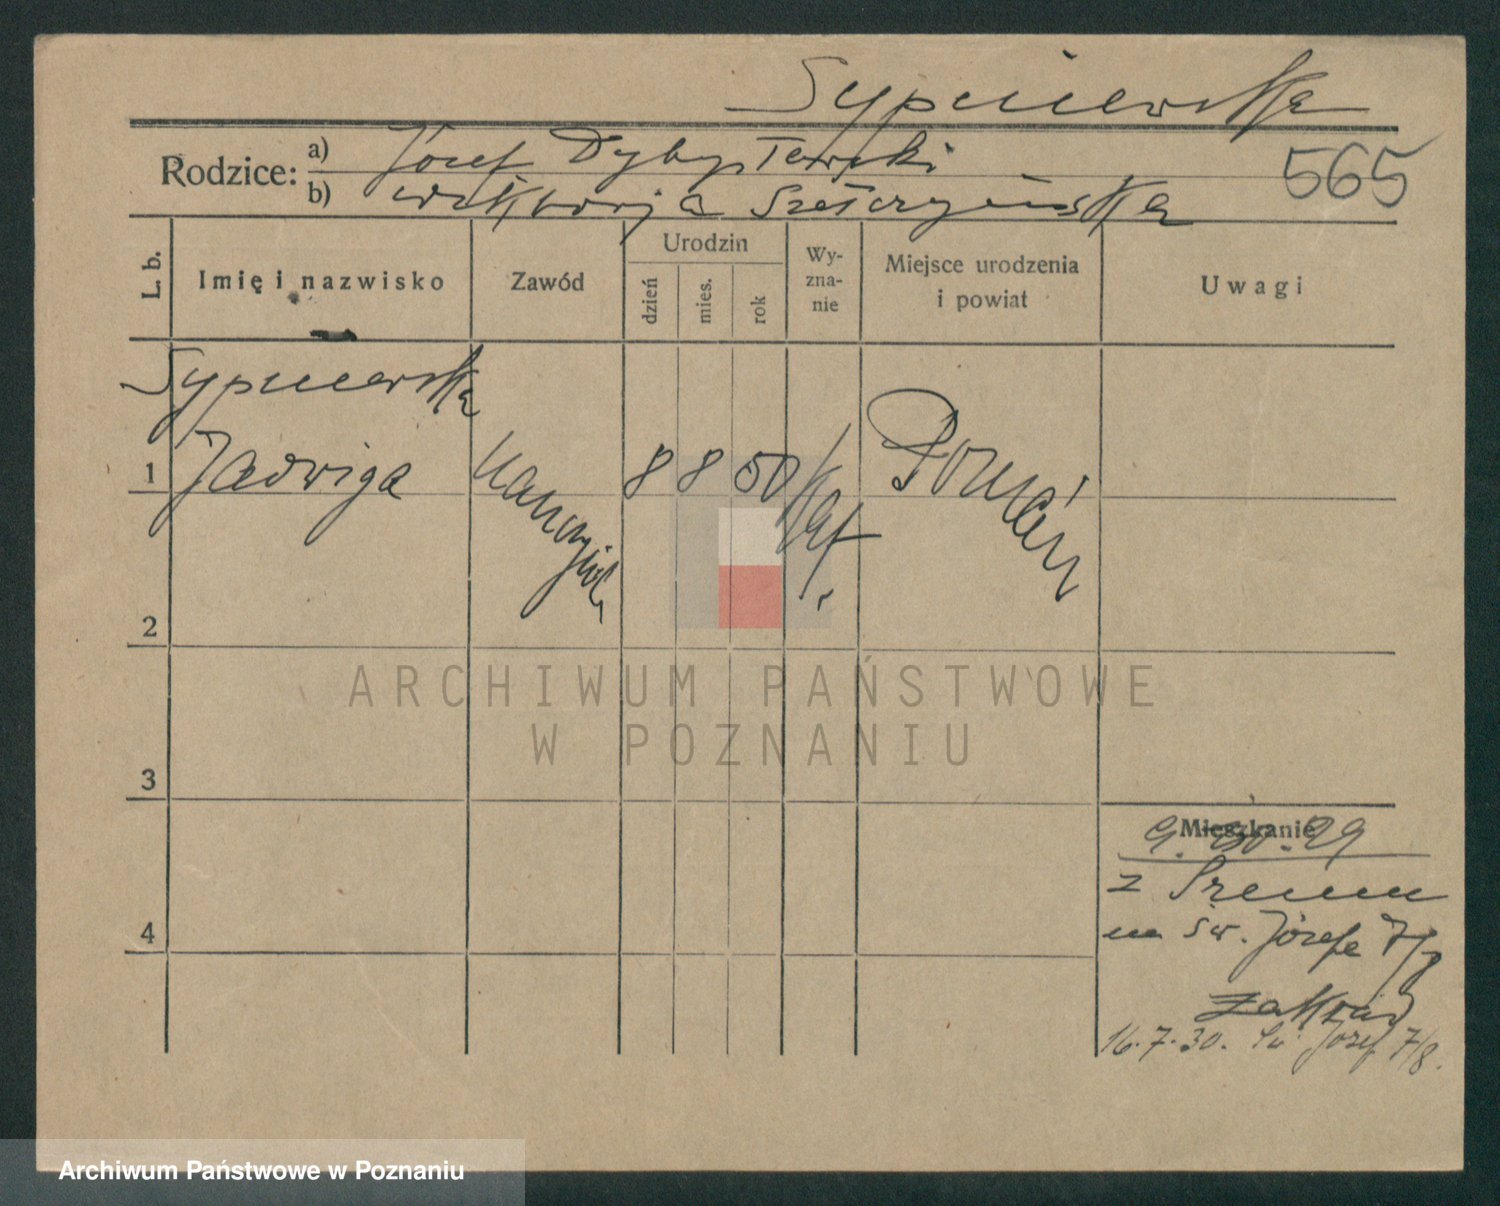 Sypniewska
Rodzice: a) Józef Dybizbański
b) Wiktorja
565
L. b.
Imię i nazwisko
Zawód
Urodzin
dzień
mies.
rok
Wy-
zna-
nie
Miejsce urodzenia
i powiat
Uwagi
Sypniewska
1 Jadwiga
8 8 50
Kat.
Poznań
2
3
4
Mieszkanie
29
z Śremu
na św. Józefa 7/8
16.7.30. Św. Józef 7/8.
ARCHIWUM PAŃSTWOWE
W POZNANIU
Archiwum Państwowe w Poznaniu